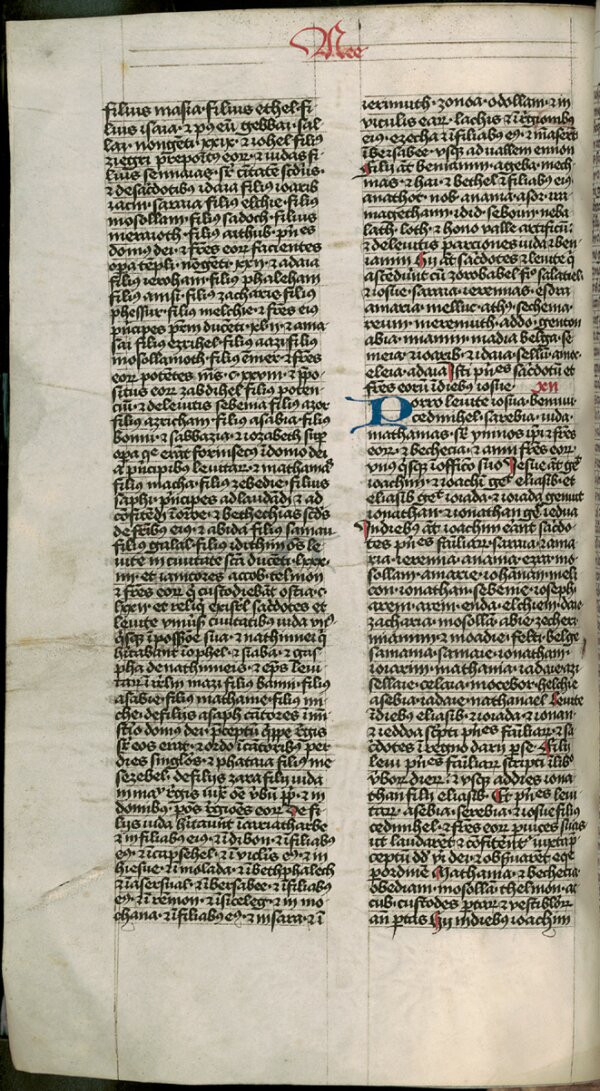 Nee
filius masia · filius ethel · fi
lius isaia · et p9 eu gebbai · sal
lai · nongeti xxix · et iohel filius
ziegri prepositus eor · et iudas fi
lius sennuas · sr citatem scdus ·
et de sacdotibus idaia filius ioarib
iacin · saraia filius elchie · filius
mosollam · filius sadoch · filius
meraioth · filius achitub · pnes
domus dei · et fres eor facientes
opa templi · et adaia
filius ieroham · filius phaleliam
filius amsi · filius zacharie filius
phessur · filius melchie · et fres eius
pncipes prm duceti · xlii · et ama
sai filius ezrihel · filius aazi filius
mosollamoth · filius emer · et fres
eor potentes nis · c · xxviii · et ppo
situs eor zabdihel filius poten
ciu · et de leuitis sebenia filius azor
filius azricham · filius asabia · filius
bonni · et sabbazia · et iozabeth sup
opa q erat forinsecus i domo dei
a pncipibus leuitar · et mathania
filius macha · filius zebedie · filius
saphi · pnceps ad laudadu et ad
cofitedu i orone · et bethechias scds
de fribus eius · et abida filius samau
filius galal · filius idithun oes le
uite in ciuitate sca duceti · lxxx ·
iiii · et ianitores accob · telmon
et fres eor q custodiebat ostia · c ·
lxxii · et reliqi ex isrl sacdotes et
leuite uniusis ciuitatibus iuda un9
qsq i possone sua · et nathinnei q
hitabant i ophel · et siaba · et gas
pha de nathinneis · et eps leui
tar i irlm · mazi filius banni · filius
asabie · filius mathanie · filius mi
che · de filiis asaph catores i mi
stio domus dei · preceptu qppe regis
sr eos erat · et ordo i catoribus per
dies singlos · et phataia filius me
sezebel · de filiis zara filii iuda
in manu regis iux oe ubu ppli · et in
domibus p oes regioes eor · De fi
liis iuda hitaunt i cariatharbe
et in filiabus eius · et i dibon · et i filiab9
eius · et i capsehel · et i uiclis eius · et in
hiesue · et i molada · et i bethphalech
et i asersual · et i bersabee · et i filiab9
eius · et i remon · et i siceleg · et in mo
chona · et i filiabus eius · et in sara · et i
ierimuth · zonoa · odollam · et in
uiculis ear · lachis et i regionib9
eius · ezecha et i filiabus eius · et maserut
i bersabee · usq ad uallem ennon
Filii at beniamin · a geba · mech
mas · et hai · et bethel et filiabus eius
anathot · nob · anania · asor · ra
ma gethaim · idid · seboim · neba
lath · loth · et hono ualle artificu ·
et de leuitis parciones iuda et ben
iamin Hii at sacdotes et leuite q
ascedunt cu zorobabel fi salatiel ·
et iosue · saraia · ieremias · esdra
amaria · melluc · ath9 · sechenia ·
reum · meremuth · addo · genton
abia · miamin · madia · belga · se
meia · et ioarib · et idaia · sellu · amoc ·
elceia · adaia Isti pnes sacdotu et
fres eoru i diebus iosue xii
Porro leuite iosua · bennui ·
cedmihel · sarebia · iuda ·
mathanias · sr ymnos ipi et fres
eor · et bechecia · et anni fres eor
un9 qsq i officio suo Iesue at ge
ioachim · et ioachi ge eliasib · et
eliasib ge ioiada · et ioiada genuit
ionathan · et ionathan ge iedua
In dieb9 at ioachim erant sacdo
tes pnes familiar · saraia · et ama
ria · ieremia · anania · ezra · mo
sollam · amarie · iohanan · meli
con · ionathan · sebenie · ioseph ·
arem · arem · enda · elchiem · daie
zacharia · mosolla · abie · zecheri
miamin · et moadie · felti · belge
samaria · samaie · ionatham ·
ioiarim · mathania · et adaie azi
sellaie · celaia · mocebor · helchie
asebia · et adaie mathanael Leuite
i diebus eliasib · et ioiada · et ionan ·
et ieddoa scpti pnes familiar · et sa
cdotes i regno darii pse · Filii
leui pnes familiar scripti i libo
uborum dierum · et usq ad dies iona
than filii eliasib · Et pnes leui
tar · asebia · serebia · et iosue filius
cedmihel · et fres eor p uices suas
ut laudaret et cofiterent iuxta p
ceptu dd uiri dei · et obseruaret eqe
p ordine Mathania · et bechecia
obediam · mosolla · thelmon · ac
cub · custodes portar · et uestiblor
an portas Hii in diebus ioachim